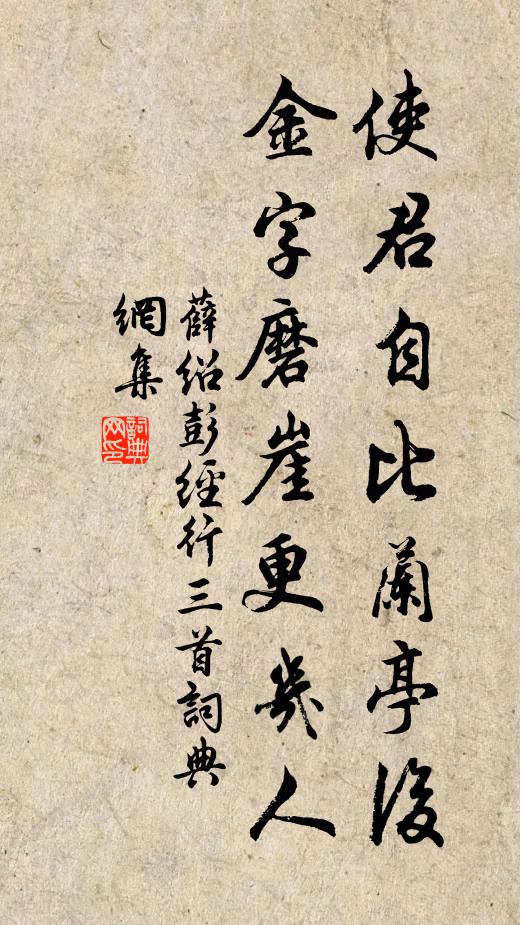 使君自比蘭亭後
金字磨崖更幾人
薛紹彭經行三首詞典
網集
詞典
网印